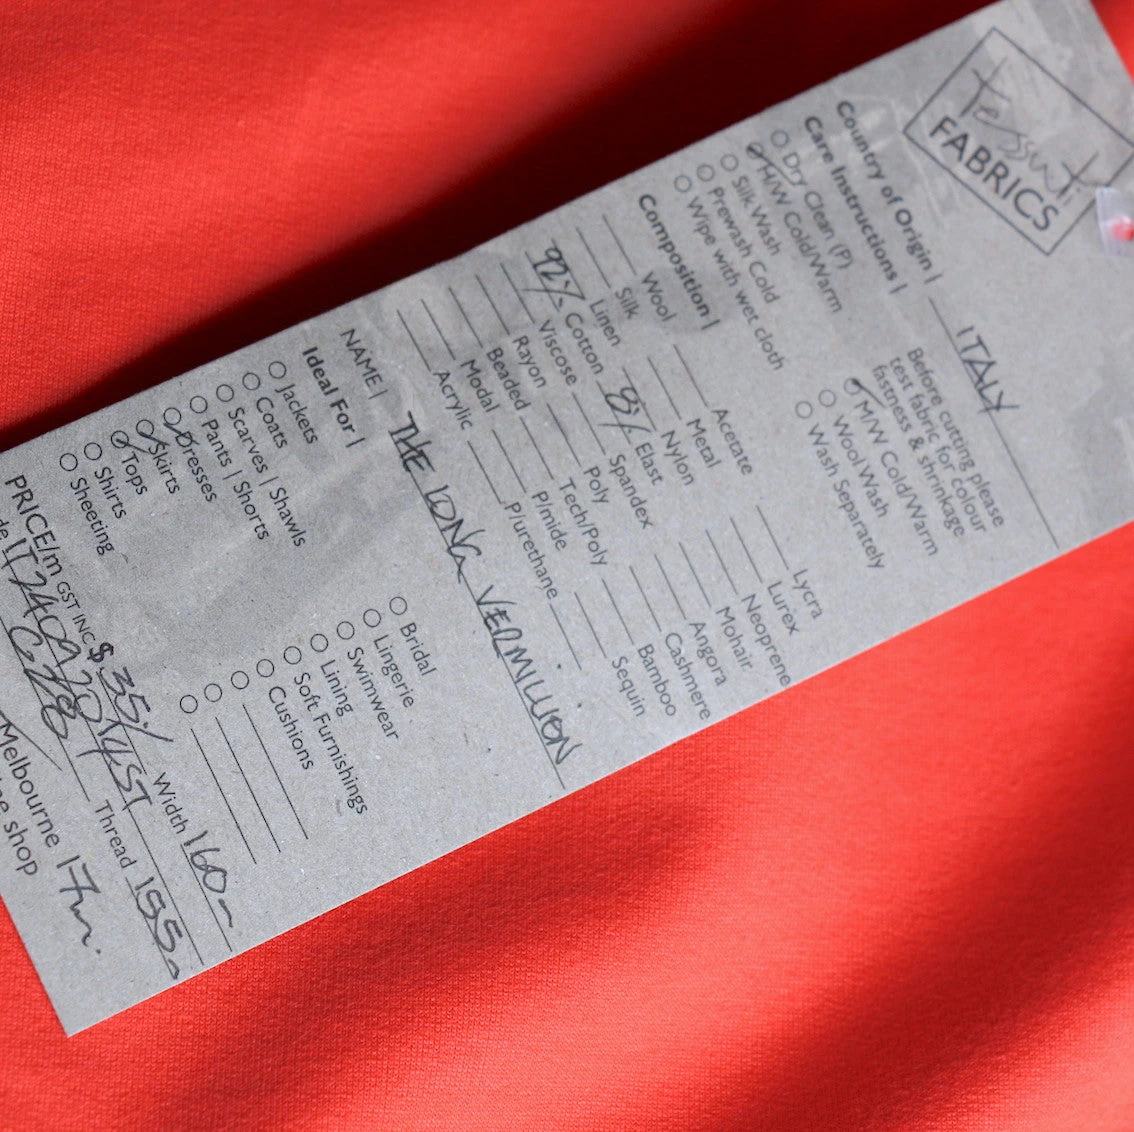 Tessuti
FABRICS
Country of Origin | ITALY
Care Instructions | Before cutting please
test fabric for colour
fastness & shrinkage
Dry Clean (P)
H/W Cold/Warm M/W Cold/Warm
Silk Wash Wool Wash
Prewash Cold Wash Separately
Wipe with wet cloth
Composition |
Wool Acetate Lycra
Silk Metal Lurex
Linen Nylon Neoprene
92% Cotton 8% Elast Mohair
Viscose Spandex Angora
Rayon Poly Cashmere
Beaded Tech/Poly Bamboo
Modal P/mide Sequin
Acrylic Plurethane
NAME | THE LONG VERMILLION
Ideal For |
Jackets Bridal
Coats Lingerie
Scarves | Shawls Swimwear
Pants | Shorts Lining
Dresses Soft Furnishings
Skirts Cushions
Tops
Shirts
Sheeting
PRICE/m GST INC $35/ Width 160
Thread 155
Melbourne 17m.
shop